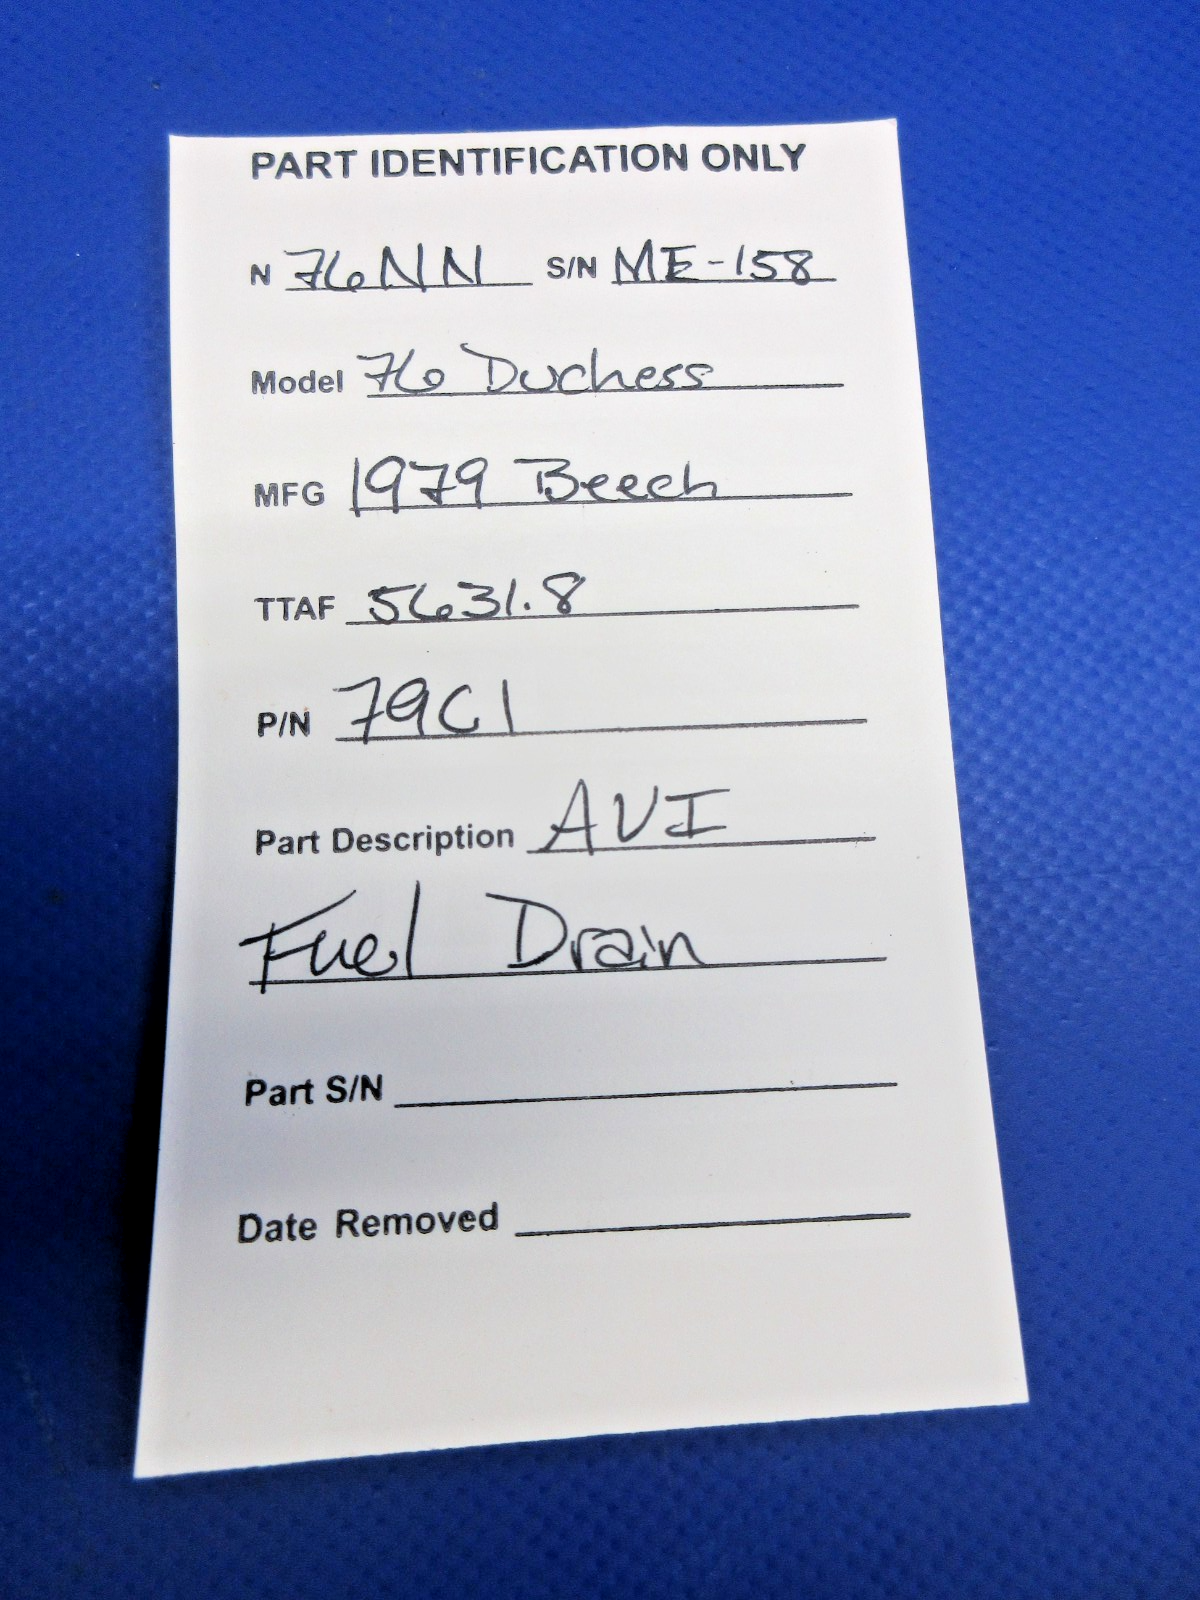 PART IDENTIFICATION ONLY
N 76NN S/N ME-158
Model 76 Duchess
MFG 1979 Beech
TTAF 5631.8
P/N 79C1
Part Description AVI
Fuel Drain
Part S/N
Date Removed